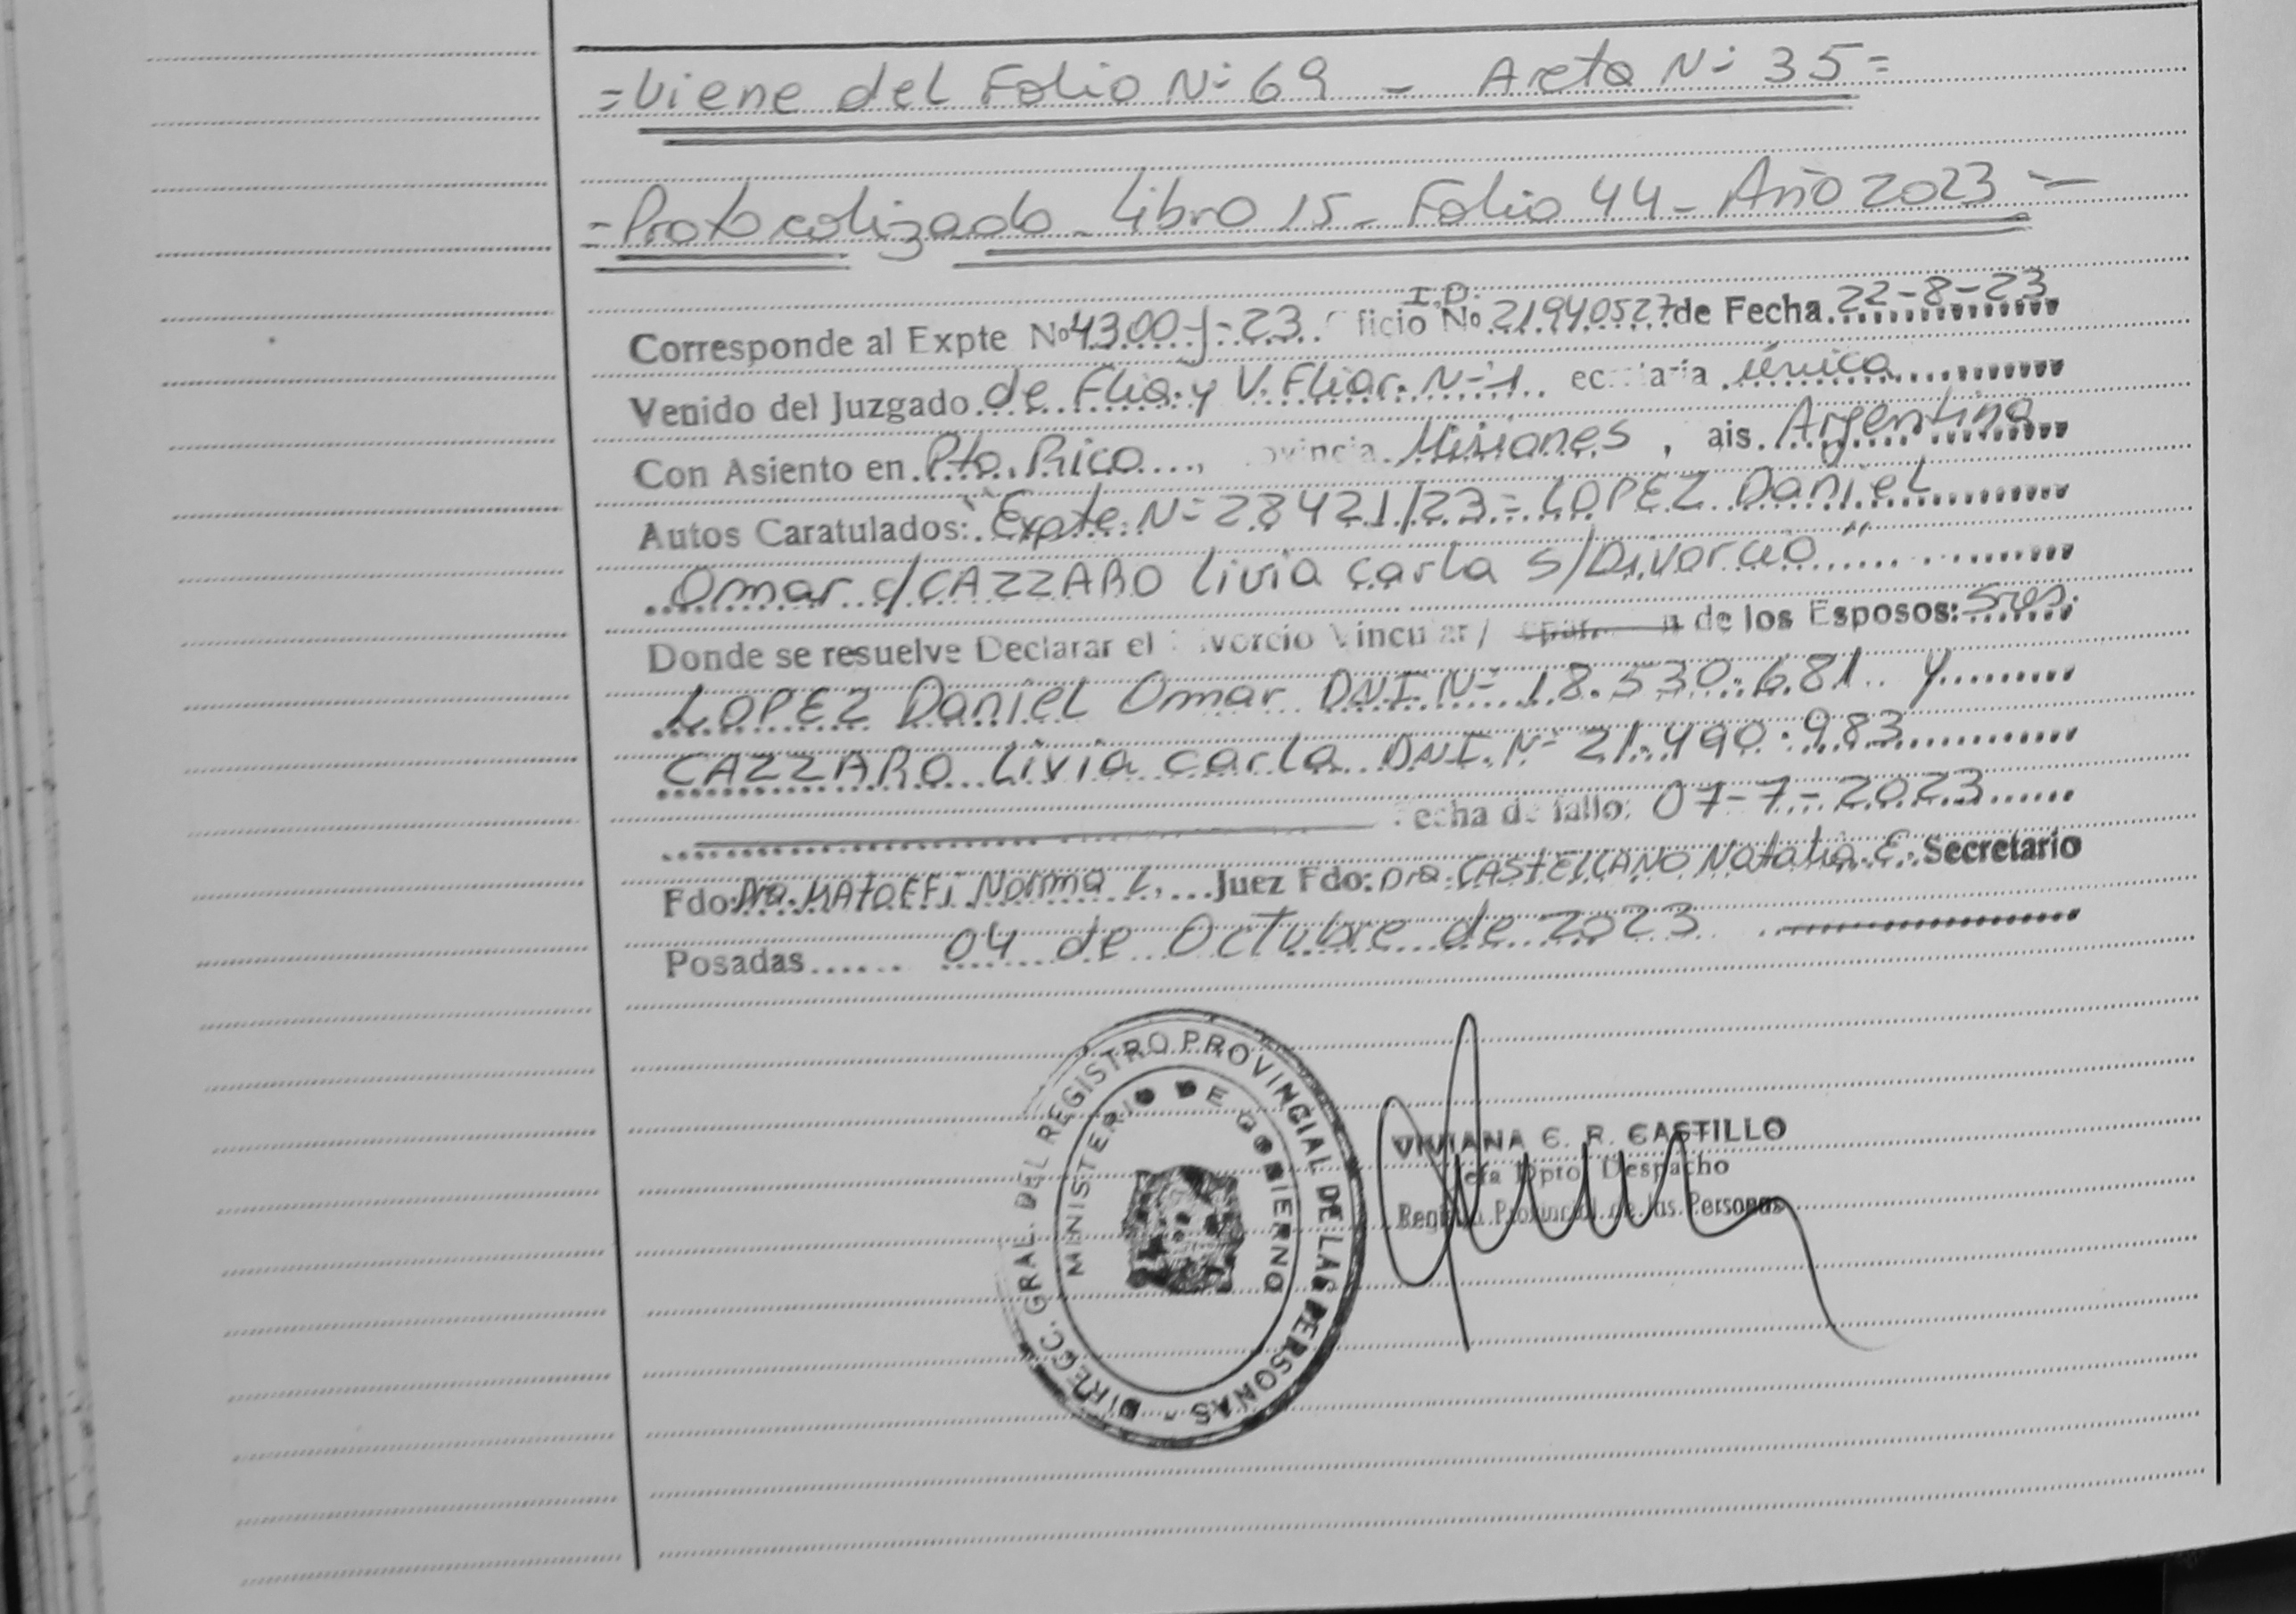 =Viene del Folio N° 69 - Acta N° 35=
=Protocolizado - Libro 15 - Folio 44 - Año 2023=
I.D.
Corresponde al Expte Nº 4300-J-23. ficio Nº 21940527 de Fecha 22-8-23
Venido del Juzgado de Flia. y V. Fliar. N°1. ec taria única
Con Asiento en Pto. Rico, ovincia Misiones, ais Argentina
Autos Caratulados: "Expte. N° 28421/23 = LOPEZ Daniel
Omar c/ CAZZARO Livia Carla s/Divorcio"
Donde se resuelve Declarar el vorcio Vincular / de los Esposos: Sres.
LOPEZ Daniel Omar DNI. N° 18.530.681. y
CAZZARO Livia Carla DNI. N° 21.490.983
Fecha de fallo: 07-7-2023
Fdo: Dra. Norma L. Juez Fdo: Dra. CASTELLANO Natalia E. Secretario
Posadas 04 de Octubre de 2023
DIRECC. GRAL. DEL REGISTRO PROVINCIAL DE LAS PERSONAS -
MINISTERIO DE GOBIERNO
VIVIANA C. R. CASTILLO
efa Dpto. Despacho
Registro Provincial de las Personas